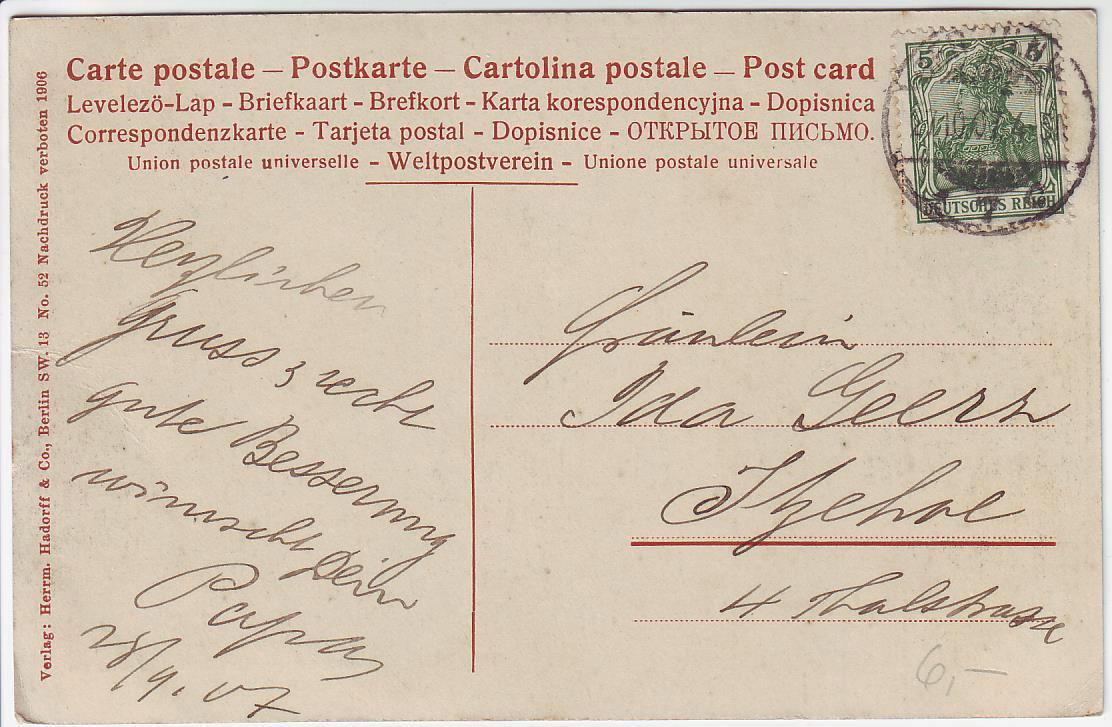 Carte postale – Postkarte – Cartolina postale – Post card
Levelezö-Lap - Briefkaart - Brefkort - Karta korespondencyjna - Dopisnica
Correspondenzkarte - Tarjeta postal - Dopisnice - ОТКРЫТОЕ ПИСЬМО.
Union postale universelle - Weltpostverein - Unione postale universale
5 5
DEUTSCHES REICH
Verlag: Herrm. Hadorff & Co., Berlin SW. 13 No. 52 Nachdruck verboten 1906
Herzlichen
Gruss & recht
gute Besserung
wünscht Dein
Papa
28/9. 07
Fräulein
Ida Geerz
Itzehoe
4 Thalstrasse
6,–